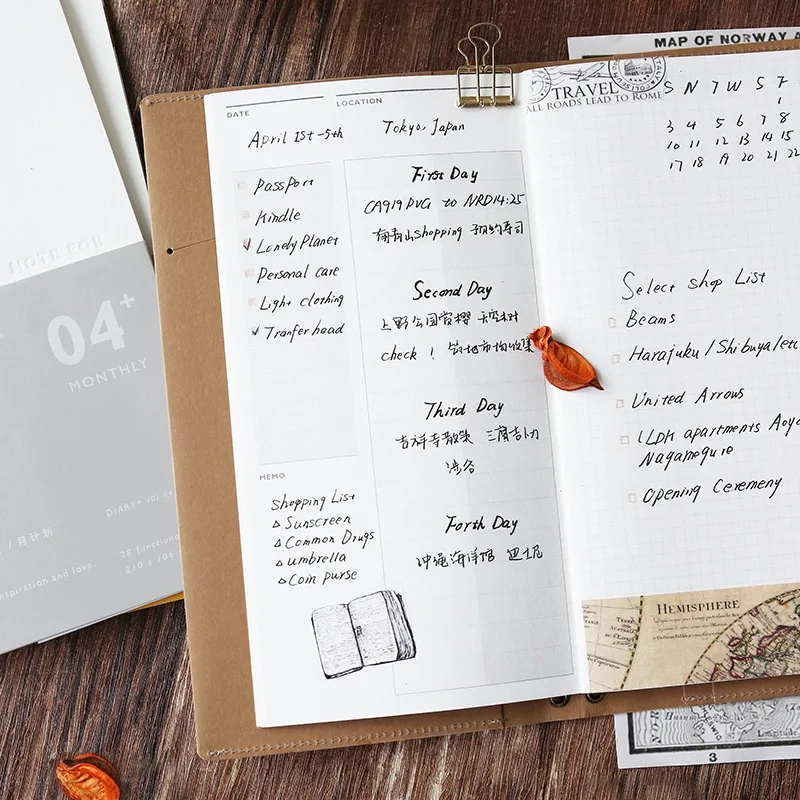 NOTE FOR
04+
MONTHLY
DIARY+ VOL.04
/ 月计划
28 function
210 x 106
inspiration and love.
DATE
LOCATION
April 1st-5th
Tokyo, Japan
PassPort
Kindle
Lonely Planet
Personal care
Light clothing
Tranfer head
MEMO
Shopping List
Sunscreen
Common Drugs
umbrella
Coin purse
First Day
CA919 PVG to NRD14:25
南青山shopping 预约寿司
Second Day
上野公园赏樱 天空树
check ! 筑地市场收集
Third Day
吉祥寺散策 三鹰吉卜力
涉谷
Forth Day
冲绳海洋馆 迪士尼
MAP OF NORWAY A
TRAVEL
ALL ROADS LEAD TO ROME
S N T W S F
1
3 4 5 6 7 8
10 11 12 13 14 15
17 18 19 20 21 22
Select shop List
Beams
Harajuku / Shibuya
United Arrows
LDK apartments
Nagamegure
Opening Ceremony
HEMISPHERE
3